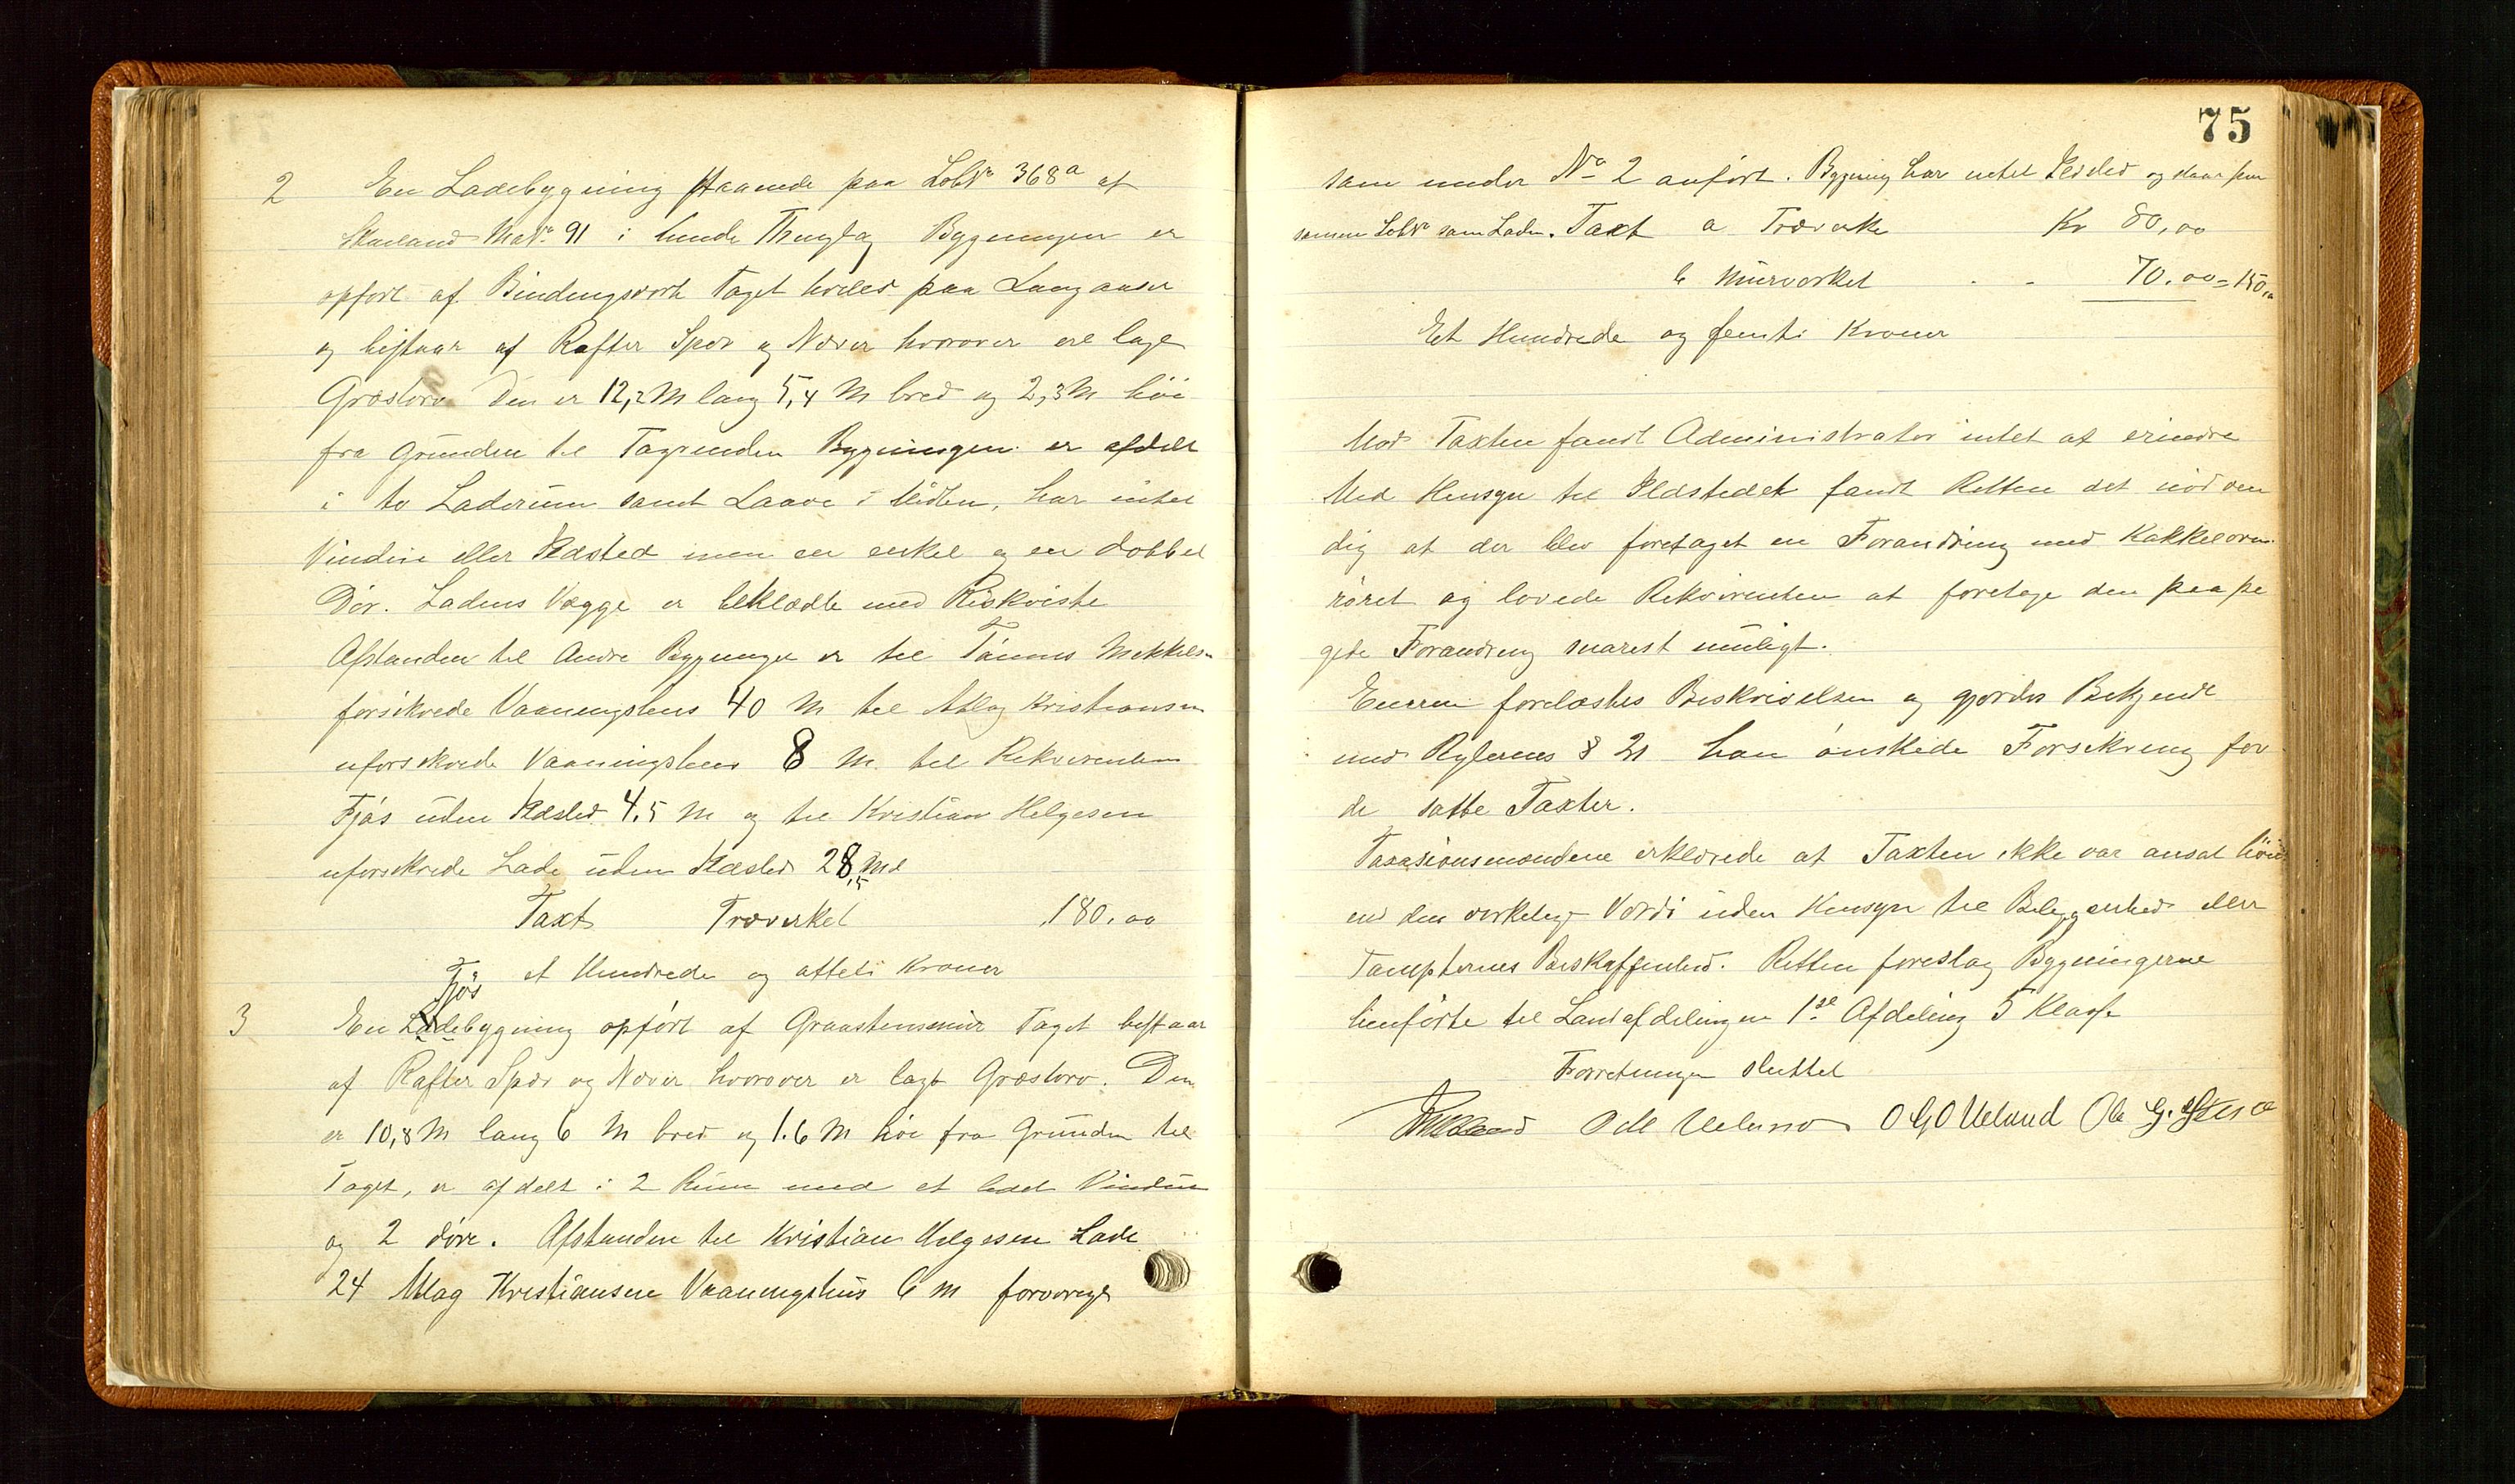 2 En Ladebygning staaende paa LobNo 368a af
Skaaland MatNo 91 i Lunde Thinglag Bygningen er
opført af Bindingsverk Taget hviler paa Langaaser
og bestaar af Rafter Spær og Næver hvorover ere lagt
Græstorv Den er 12,2 M lang 5,4 M bred og 2,3 M høi
fra Grunden til Tagrenden Bygningen er afdelt
i to Laderum samt Laave i Midten, har intet
Vindue eller Ildsted men en enkel og en dobbel
Dør. Ladens Vægge er beklædte med Riskviste
Afstanden til Andre Bygninger er til Tønnes Mikkelsen
forsikrede Vaaningshus 40 M til Atlag Kristiansen
uforsikrede Vaaningshus 8 M til Rekvirenten
Fjøs uden Ildsted 4.5 M og til Kristian Helgesen
uforsikrede Lade uden Ildsted 28,5 M
Taxt Træverket 180.00
et Hundrede og otteti Kroner
Fjøs
3 En Ladebygning opført af Graastensmur Taget bestaar
af Rafter Spær og Næver hvorover er lagt Græstorv. Den
er 10,8 M lang 6 M bred og 1.6 M høi fra Grunden til
Taget, er afdelt i 2 Rum med et lidet Vindue
og 2 døre. Afstanden til Kristian Helgesen Lade
24 Atlag Kristiansen Vaaningshus 6 M forøvrigt
75
som under No 2 anført. Bygning har intet Ildsted og staar paa
samme LobNo som Laden. Taxt a Træverke Kr 80,00
b Murverket - - 70.00 = 150,00
Et Hundrede og femti Kroner
Mod Taxten fandt Administrator intet at erindre
Med Hensyn til Ildstedet fandt Retten det nødven
dig at der blev foretaget en Forandring med Kakkelovns
røret og lovede Rekvirenten at foretage den paape
gede Forandring snarest muligt.
Eieren forelæstes Beskrivelsen og gjordes Bekjendt
med Reglernes § 21 han ønskede Forsikring for
de satte Taxter.
Taxasionsmændene erklærede at Taxten ikke var ansat høiere
end den virkelige Værdi uden Hensyn til Beliggenhed eller
Tompternes Beskaffenhed. Retten foreslog Bygningerne
henførte til Landafdelingen 1ste Afdeling 5 Klasse
Forretningen sluttet
O M Ueland O G O Ueland Ole G.